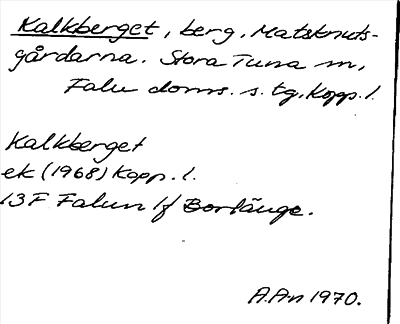 Kalkberget, berg, Matsknuts-
gårdarna. Stora Tuna sn,
Falu doms. s. tg, Kopp. l.
Kalkberget
ek (1968) Kopp. l.
13F Falun 1f Borlänge.
A.An 1970.